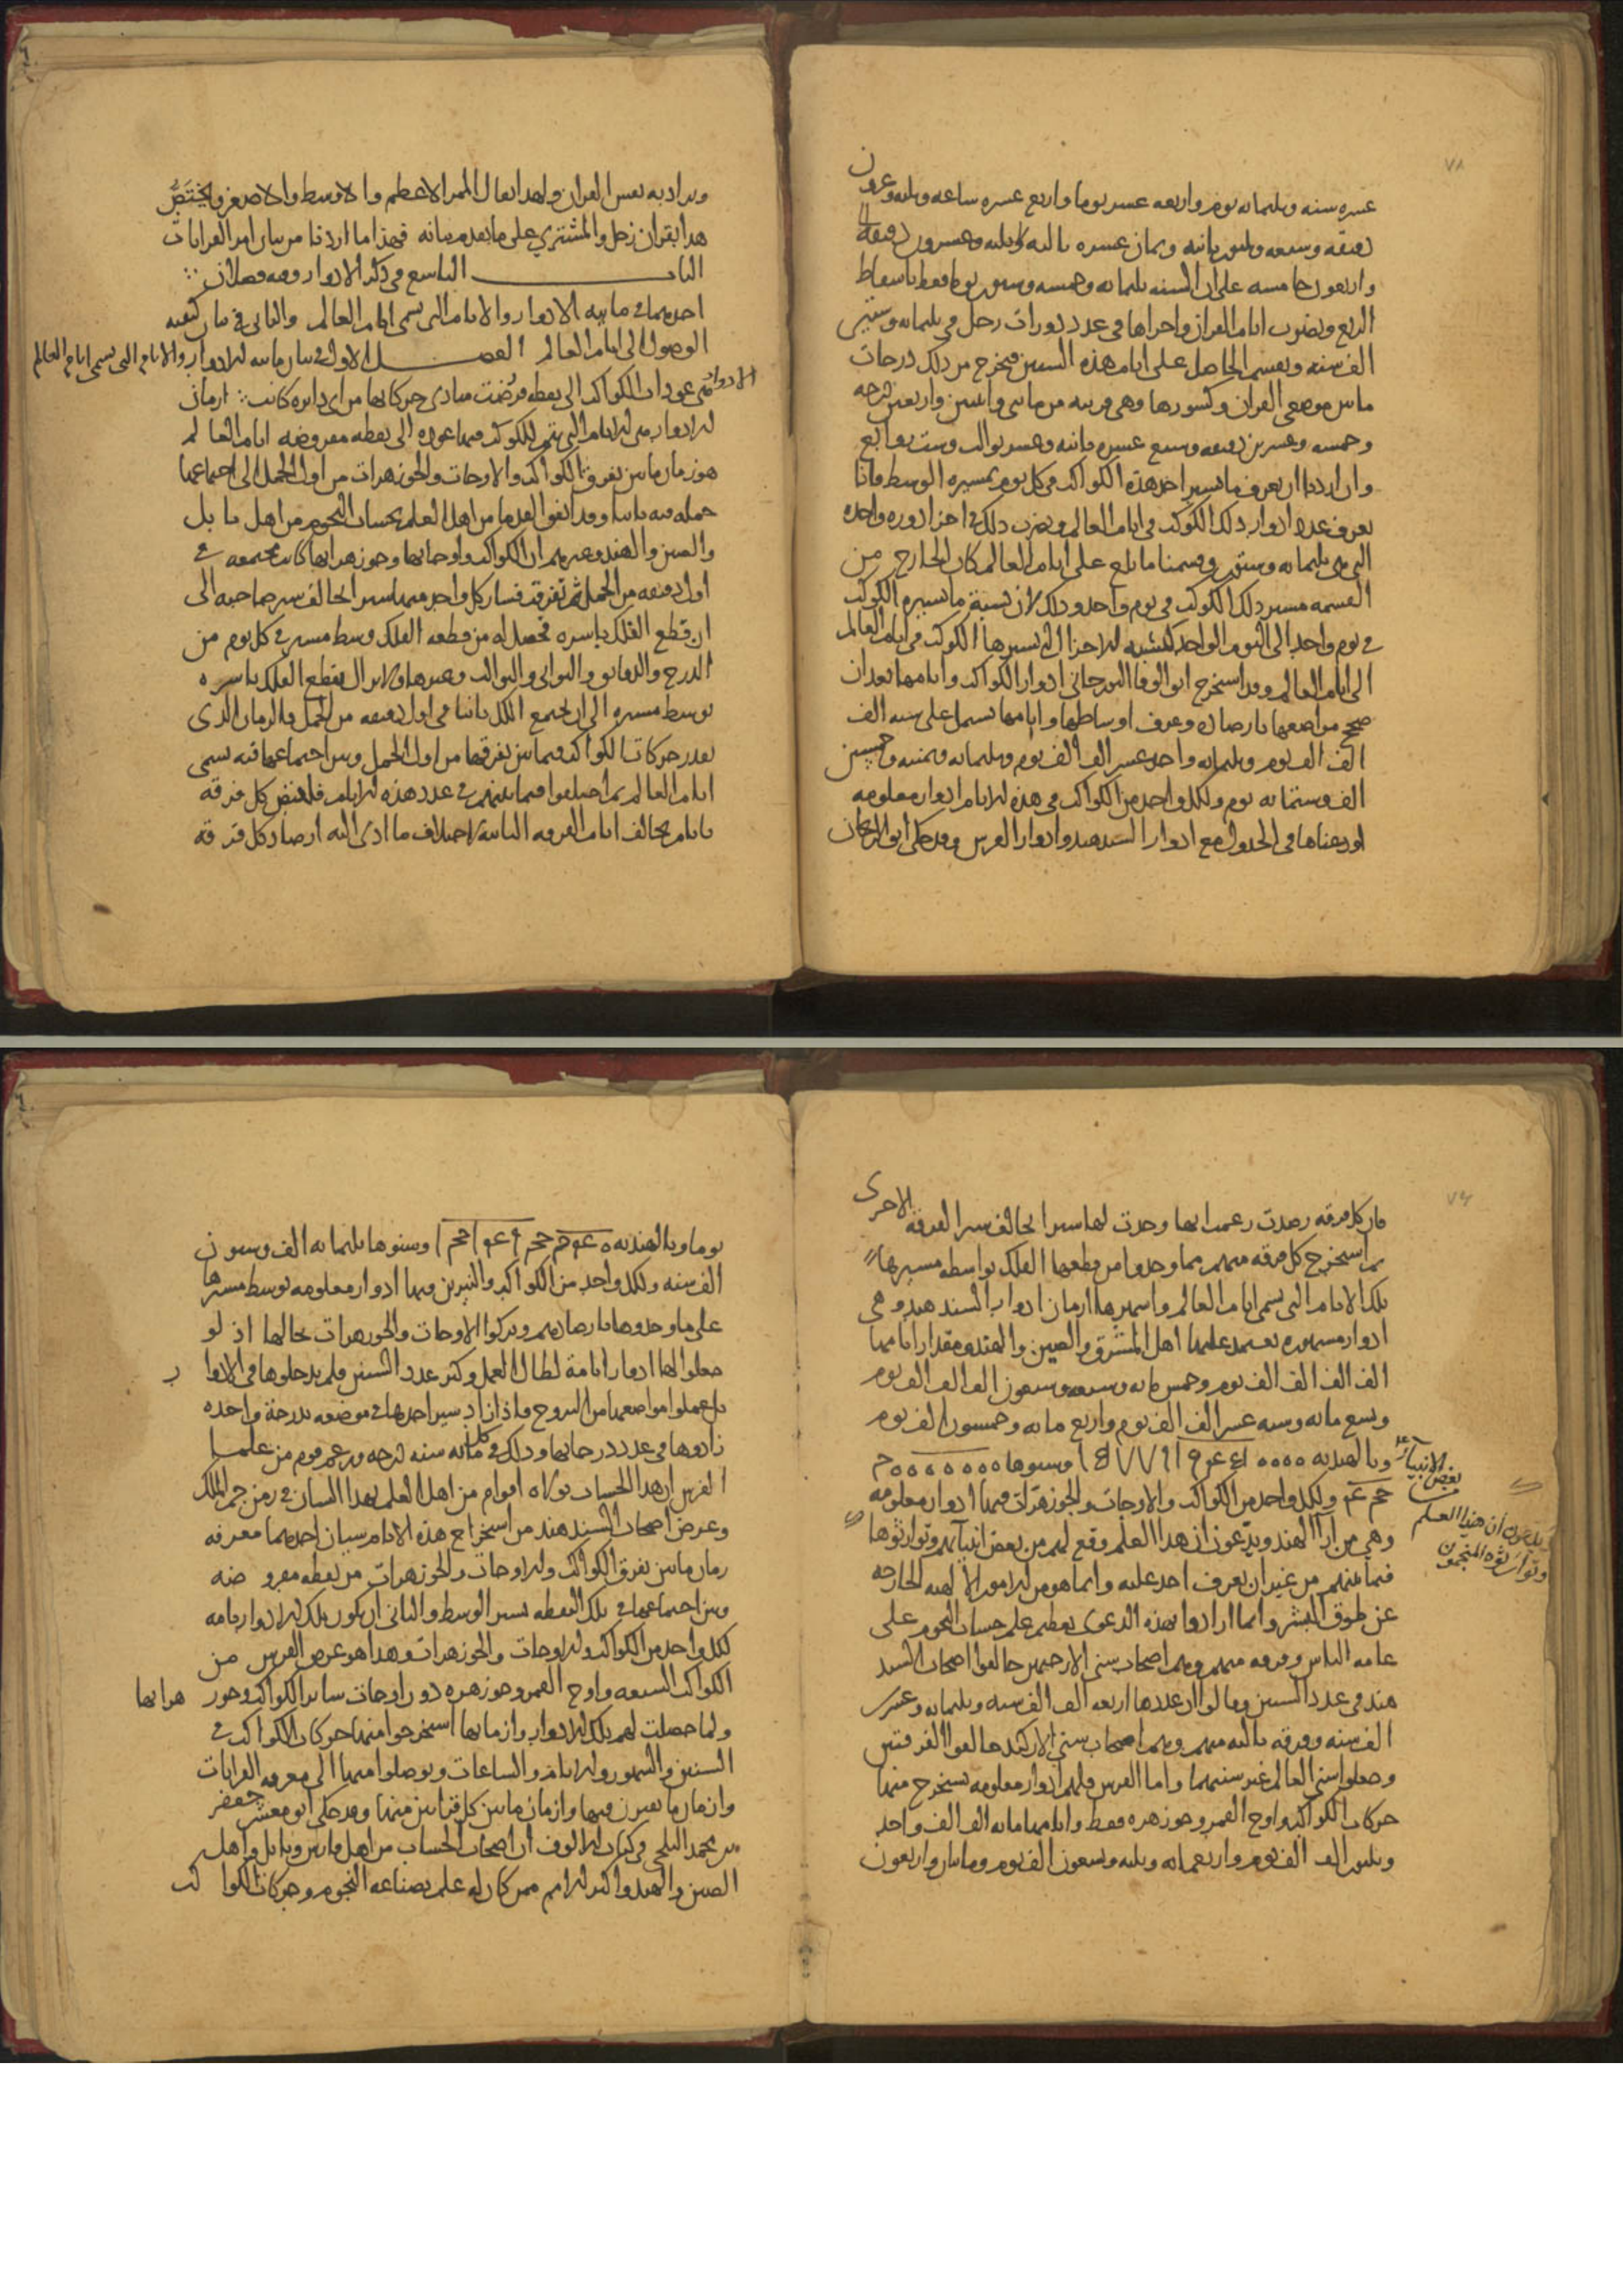 ٧٨
عشره سنه وثلثمائه يوم واربعه عشر يوما واربع عشره ساعه وثلثه وعشرون
دقيقه وسبعه وثلثون ثانيه وثمان عشره ثالثه وثلثه وعشرون رابعه
واربعون خامسه على ان السنه ثلثمائه وخمسه وستون يوما فقط باسقاط
الربع ويضرب ايام القران واجزاها في عدد دورات زحل في ثلثمائه وستين
الف سنه ويقسم الحاصل على ايام هذه السنين فيخرج من ذلك درجات
ما بين موضعي القران وكسورها وهي قريبه من مائتي واثنين واربعين درجه
وخمسه وعشرين دقيقه وسبع عشره ثانيه وعشر ثوالث وست روابع
وان اردنا ان نعرف ما تسير احد هذه الكواكب في كل يوم بمسيره الوسط فانا
نعرف عدد ادوار ذلك الكوكب في ايام العالم ونضرب ذلك في اجزا دوره واحده
التي هي ثلثمائه وستون وقسمنا ما بلغ على ايام العالم كان الخارج من
القسمه مسير ذلك الكوكب في يوم واحد وذلك لان نسبة ما تسيره الكوكب
في يوم واحد الى اليوم الواحد كنسبه الاجزا التي تسيرها الكوكب في ايام العالم
الى ايام العالم وقد استخرج ابو الوفا البوزجاني ادوار الكواكب وايامها بعد ان
صحح مواضعها بارصاده وعرف اوساطها وايامها تشتمل على سته الف
الف الف يوم وثلثمائه واحد عشر الف الف يوم وثلثمائه وثمنيه وخمسين
الف وستمائه يوم ولكل واحد من الكواكب في هذه الايام ادوار معلومه
اودعناها في الجدول مع ادوار السندهند وادوار الفرس وقد حكى ابو الريحان
ويراد به نفس القران ولهذا يقال الممر الاعظم والاوسط والاصغر ويختص
هذا بقران زحل والمشتري على ما تقدم بيانه فهذا ما اردنا من بيان امر القرانات
الباب التاسع في ذكر الادوار وفيه فصلان
احدهما في مائيه الادوار والايام التي تسمى ايام العالم والثاني في بيان كيفيه
الوصول الى ايام العالم الفصل الاول في بيان مائيه الادوار والايام التي تسمى ايام العالم
الادوار هي عودات الكواكب الى نقطه فرضت مبادي حركاتها من اي دايره كانت ازمان
الادوار هي الايام التي يتم للكوكب فيها عوده الى نقطه مفروضه ايام العالم
هو زمان ما بين تفرق الكواكب والاوجات والجوزهرات من اول الحمل الى اجتماعها
جمله فيه ثانيا وقد اتفق القدما من اهل العلم بحساب النجوم من اهل بابل
والصين والهند وغيرهم ان الكواكب واوجاتها وجوزهراتها كانت مجتمعه في
اول دقيقه من الحمل ثم تفرقت فسار كل واحد منها سيرا يخالف سير صاحبه الى
ان قطع الفلك باسره فحصل له من قطعه الفلك وسط مسير في كل يوم من
الدرج والدقايق والثواني والثوالث وغيرها ولا يزال يقطع الفلك باسره
بوسط مسيره الى ان تجتمع الكل ثانيا في اول دقيقه من الحمل والزمان الذي
يعدد حركات الكواكب فيما بين تفرقها من اول الحمل وبين اجتماعها فيه تسمى
ايام العالم ثم اختلفوا فيما بينهم في عدد هذه الايام فلهذا كل فرقه
بايام يخالف ايام الفرقه الثانيه لاختلاف ما ادى اليه ارصاد كل فرقه
٧٩
فان كل فرقه رصدت زعمت انها وجدت لها سيرا يخالف سير الفرقه الاخرى
ثم استخرج كل فرقه منهم مما وجدوا من قطعها الفلك بواسطه مسيرها
تلك الايام التي تسمى ايام العالم واشهرها ازمان ادوار السند هند وهي
ادوار مشهوره يعتمد عليها اهل المشرق والصين والهند ومقدار ايامها
الف الف الف الف يوم وخمس مائه وسبعه وسبعون الف الف الف يوم
وتسع مائه وسته عشر الف الف يوم واربع مائه وخمسون الف يوم
وبالهنديه وسنوها
ولكل واحد من الكواكب والاوجات والجوزهرات فيها ادوار معلومه
وهي من ارا الهند ويدعون ان هذا العلم وقع لهم من بعض انبيآئهم وتوارثوها
فيما بينهم من غير ان يعرف احد عليه وانما هو من الامور الالهيه الخارجه
عن طوق البشر وانما ارادوا بهذه الدعوى تعظيم علم حساب النجوم على
عامه الناس وفرقه منهم وهم اصحاب سني الارجبهر خالفوا اصحاب السند
هند في عدد السنين وقالوا ان عددها اربعه الف الف سنه وثلثمائه وعشرين
الف سنه وفرقه ثالثه منهم وهم اصحاب سني الاركند خالفوا الفرقتين
وجعلوا سني العالم غير سنيهما واما الفرس فلهم ادوار معلومه يستخرج منها
حركات الكواكب واوج القمر وجوزهره فقط وايامها مائه الف الف واحد
وثلثون الف الف يوم واربعمائه وثلثه وتسعون الف يوم ومائتان واربعون
بعض الانبيآء
يدعون ان هذا العلم
وتوارثوه المنجمون
يوما وبالهنديه وسنوها ثلثمائه الف وستون
الف سنه ولكل واحد من الكواكب والنيرين فيها ادوار معلومه بوسط مسيرها
على ما وجدوها بارصادهم وتركوا الاوجات والجوزهرات بحالها اذ لو
جعلوا لها ادوارا تامة لطال العمل وكثر عدد السنين فلم يدخلوها في الادوار
بل عملوا مواضعها من البروج واذا زاد سير احدها في موضعه بدرجة واحده
زادوها في عدد درجاتها وذلك في كل مائه سنه درجه وزعم قوم من علما
الفرس ان هذا الحساب تولاه اقوام من اهل العلم بهذا الشان في زمن جم الملك
وغرض اصحاب السند هند من استخراج هذه الايام سيان احدهما معرفه
زمان ما بين تفرق الكواكب والاوجات والجوزهرات من نقطه مفروضه
وبين اجتماعها في تلك النقطه بسير الوسط والثاني ان يكون تلك الادوار تامه
لكل واحد من الكواكب والاوجات والجوزهرات وهذا هو غرض الفرس من
الكواكب السبعه واوج القمر وجوزهره دون اوجات ساير الكواكب وجوزهراتها
ولما حصلت لهم تلك الادوار وازمانها استخرجوا منها حركات الكواكب في
السنين والشهور والايام والساعات وتوصلوا منها الى معرفه القرانات
وازمان ما يعبرن فيها وازمان ما بين كل قرانين منها وقد حكى ابو معشر جعفر
بن محمد البلخي في كتاب الالوف ان اصحاب الحساب من اهل فارس وبابل واهل
الصين والهند واكثر الامم ممن كان له علم بصناعه النجوم وحركات الكواكب